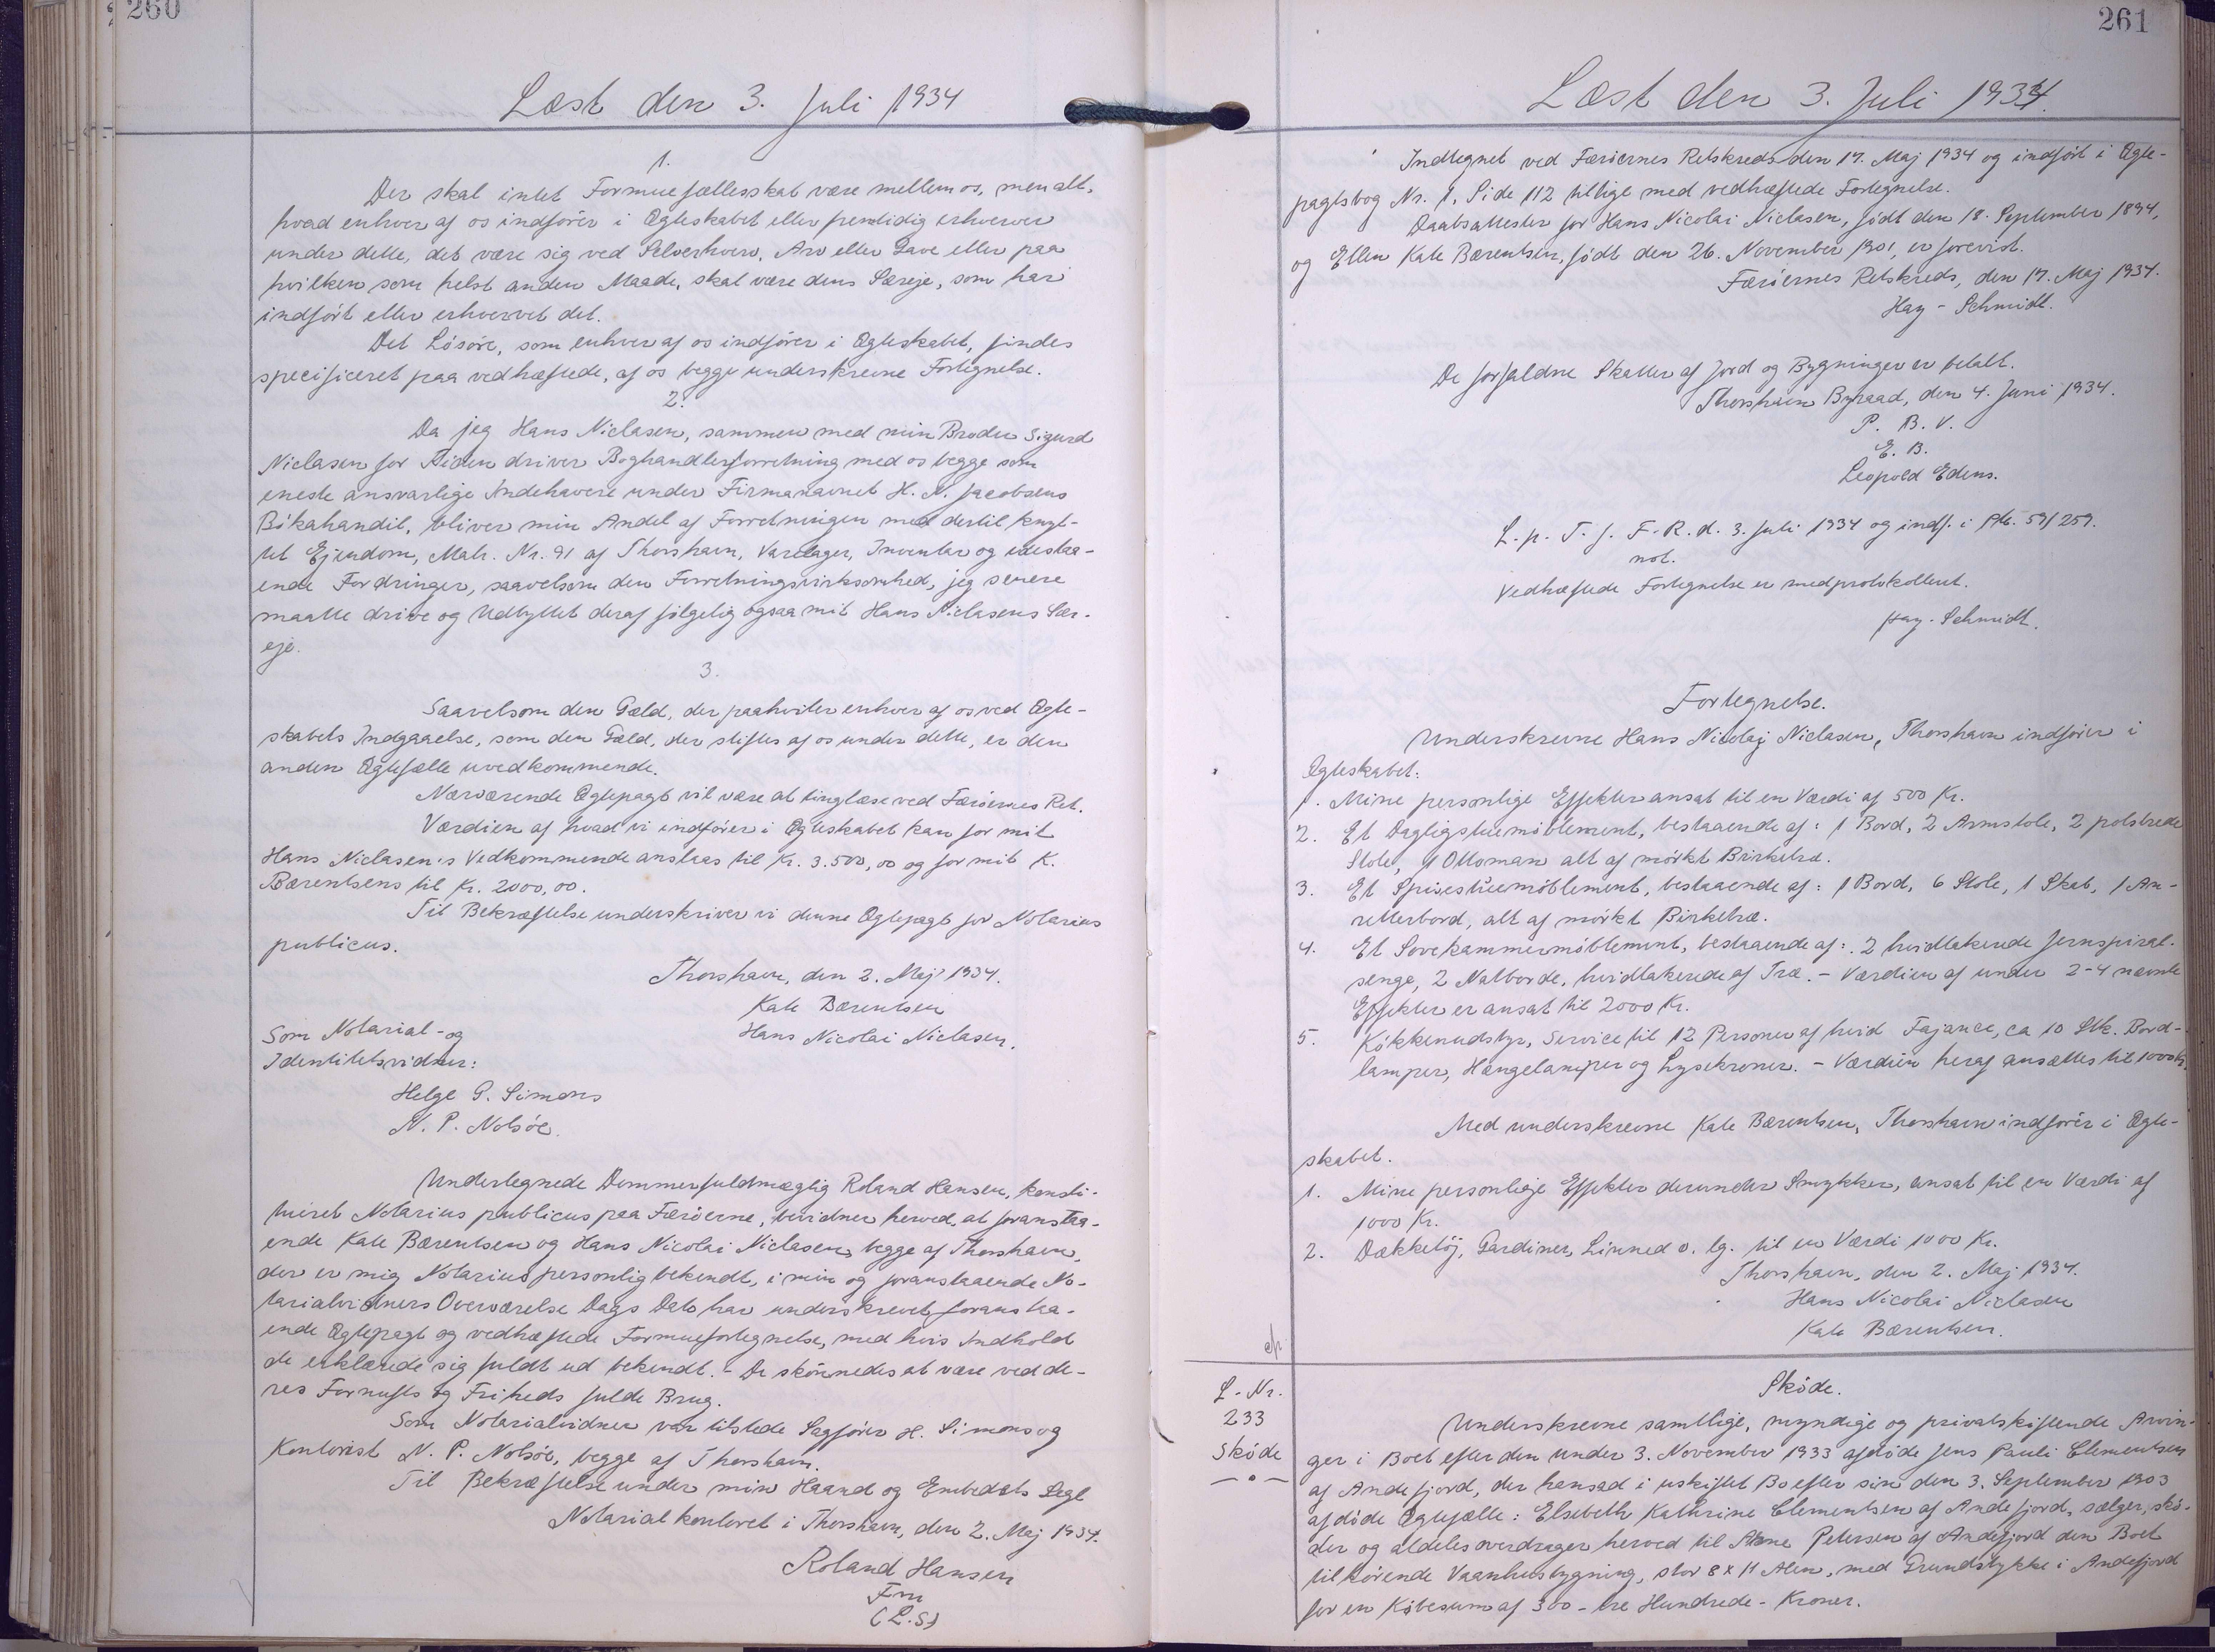 260
Læst den 3. Juli 1934
1.
Der skal intet Formuefællesskab være mellem os, men alt,
hvad enhver af os indfører i Ægteskabet eller fremtidig erhverver
under dette, det være sig ved Selverhverv, Arv eller Gave eller paa
hvilken som helst anden Maade, skal være dens Særeje, som har
indført eller erhvervet det.
Det Løsøre, som enhver af os indfører i Ægteskabet, findes
specificeret paa vedhæftede, af os begge underskrevne Fortegnelse.
2.
Da jeg Hans Niclasen, sammen med min Broder Sigurd
Niclasen for Tiden driver Boghandlerforretning med os begge som
eneste ansvarlige Indehavere under Firmanavnet H. N. Jacobsens
Bókahandil, bliver min Andel af Forretningen med dertil knyt-
tet Ejendom, Matr. Nr. 91 af Thorshavn, Varelager, Inventar og udestaa-
ende Fordringer, saavelsom den Forretningsvirksomhed, jeg senere
maatte drive og Udbyttet deraf følgelig ogsaa mit Hans Niclasens Sær-
eje.
3.
Saavelsom den Gæld, der paahviler enhver af os ved Ægte-
skabets Indgaaelse, som den Gæld, der stiftes af os under dette, er den
anden Ægtefælle uvedkommende.
Nærværende Ægtepagt vil være at tinglæse ved Færøernes Ret.
Værdien af hvad vi indfører i Ægteskabet kan for mit
Hans Niclasen's Vedkommende anslaas til Kr. 3.500,00 og for mit K.
Bærentsens til Kr. 2000,00.
Til Bekræftelse underskriver vi denne Ægtepagt for Notarius
publicus.
Thorshavn, den 2. Maj 1934.
Kate Bærentsen
Hans Nicolai Niclasen.
Som Notarial- og
Identitetsvidner:
Helge G. Simons
N. P. Nolsøe.
Undertegnede Dommerfuldmægtig Roland Hansen, konsti-
tueret Notarius publicus paa Færøerne, bevidner herved, at foranstaa-
ende Kate Bærentsen og Hans Nicolai Niclasen, begge af Thorshavn,
der er mig Notarius personlig bekendt, i min og foranstaaende No-
tarialvidners Overværelse Dags Dato har underskrevet foranstaa-
ende Ægtepagt og vedhæftede Formuefortegnelse, med hvis Indhold
de erklærede sig fuldt ud bekendt. - De skønnedes at være ved de-
res Fornufts og Friheds fulde Brug.
Som Notarialvidner var tilstede Sagfører H. Simons og
Kontorist N. P. Nolsøe, begge af Thorshavn.
Til Bekræftelse under min Haand og Embedets Segl
Notarialkontoret i Thorshavn, den 2. Maj 1934.
Roland Hansen
Fm
(L.S)
261
Læst den 3. Juli 1934.
Indtegnet ved Færøernes Retskreds den 17. Maj 1934 og indført i Ægte-
pagtsbog Nr. 1, Side 112 tillige med vedhæftede Fortegnelse.
Daabsattester for Hans Nicolai Niclasen, født den 18. September 1894,
og Ellen Kate Bærentsen, født den 26. November 1901, er forevist.
Færøernes Retskreds, den 17. Maj 1934.
Hay - Schmidt.
De forfaldne Skatter af Jord og Bygninger er betalt.
Thorshavn Byraad, den 4. Juni 1934.
P. B. V.
E. B.
Leopold Edens.
L. p. T. f. F. R. d. 3. Juli 1934 og indf. i Ptb. 59/259.
not.
Vedhæftede Fortegnelse er medprotokolleret.
Hay-Schmidt.
Fortegnelse.
Underskrevne Hans Nicolaj Niclasen, Thorshavn indfører i
Ægteskabet:
1. Mine personlige Effekter ansat til en Værdi af 500 Kr.
2. Et Dagligstuemøblement, bestaaende af: 1 Bord, 2 Armstole, 2 polstrede
Stole, 1 Ottoman alt af mørkt Birketræ.
3. Et Spisestuemøblement, bestaaende af: 1 Bord, 6 Stole, 1 Skab, 1 An-
retterbord, alt af mørkt Birketræ.
4. Et Sovekammermøblement, bestaaende af: 2 hvidlakerede Jernspiral-
senge, 2 Natborde, hvidlakerede af Træ. - Værdien af under 2-4 nævnte
Effekter er ansat til 2000 Kr.
5. Køkkenudstyr, Service til 12 Personer af hvid Fajance, ca 10 Stk. Bord-
lamper, Hængelamper og Lysekroner. - Værdien heraf ansættes til 1000 Kr.
Med underskrevne Kate Bærentsen, Thorshavn indfører i Ægte-
skabet.
1. Mine personlige Effekter derunder Smykker, ansat til en Værdi af
1000 Kr.
2. Dækketøj, Gardiner, Linned o. lg. til en Værdi 1000 Kr.
Thorshavn, den 2. Maj 1934.
Hans Nicolai Niclasen
Kate Bærentsen.
L. Nr.
233
Skøde
Skøde.
Underskrevne samtlige, myndige og privatskiftende Arvin-
ger i Boet efter den under 3. November 1933 afdøde Jens Pauli Clementsen
af Andefjord, der hensad i uskiftet Bo efter sin den 3. September 1903
afdøde Ægtefælle: Elsebeth Kathrine Clementsen af Andefjord, sælger, skø-
der og aldeles overdrager herved til Petersen af Andefjord den Boet
tilhørende Vaanhusbygning, stor 8 x 11 Alen, med Grundstykke i Andefjord
for en Købesum af 300 - tre Hundrede - Kroner.